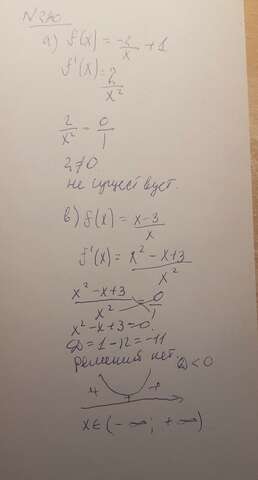 N 270
а) f(x) = -2/x + 1
f'(x) = 2/x²
2/x² - 0/1
2 ≠ 0
не существует.
в) f(x) = x-3/x
f'(x) = x²-x+3/x²
x²-x+3/x² = 0/1
x²-x+3=0
D = 1-12 = -11
решений нет. D<0
+ +
x∈(-∞; +∞)